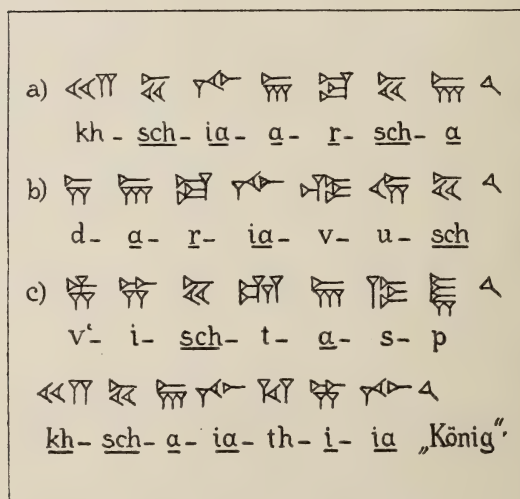 a) 𐎧 𐏁 𐎹 𐎠 𐎼 𐏁 𐎠 𐏐
kh - sch - ia - a - r - sch - a
b) 𐎭 𐎠 𐎼 𐎹 𐎺 𐎢 𐏁 𐏐
d - a - r - ia - v - u - sch
c) 𐎻 𐎡 𐏁 𐎫 𐎠 𐎿 𐎱 𐏐
v‘ - i - sch - t - a - s - p
𐎧 𐏁 𐎠 𐎹 𐎰 𐎡 𐎹 𐏐
kh - sch - a - ia - th - i - ia „König“.